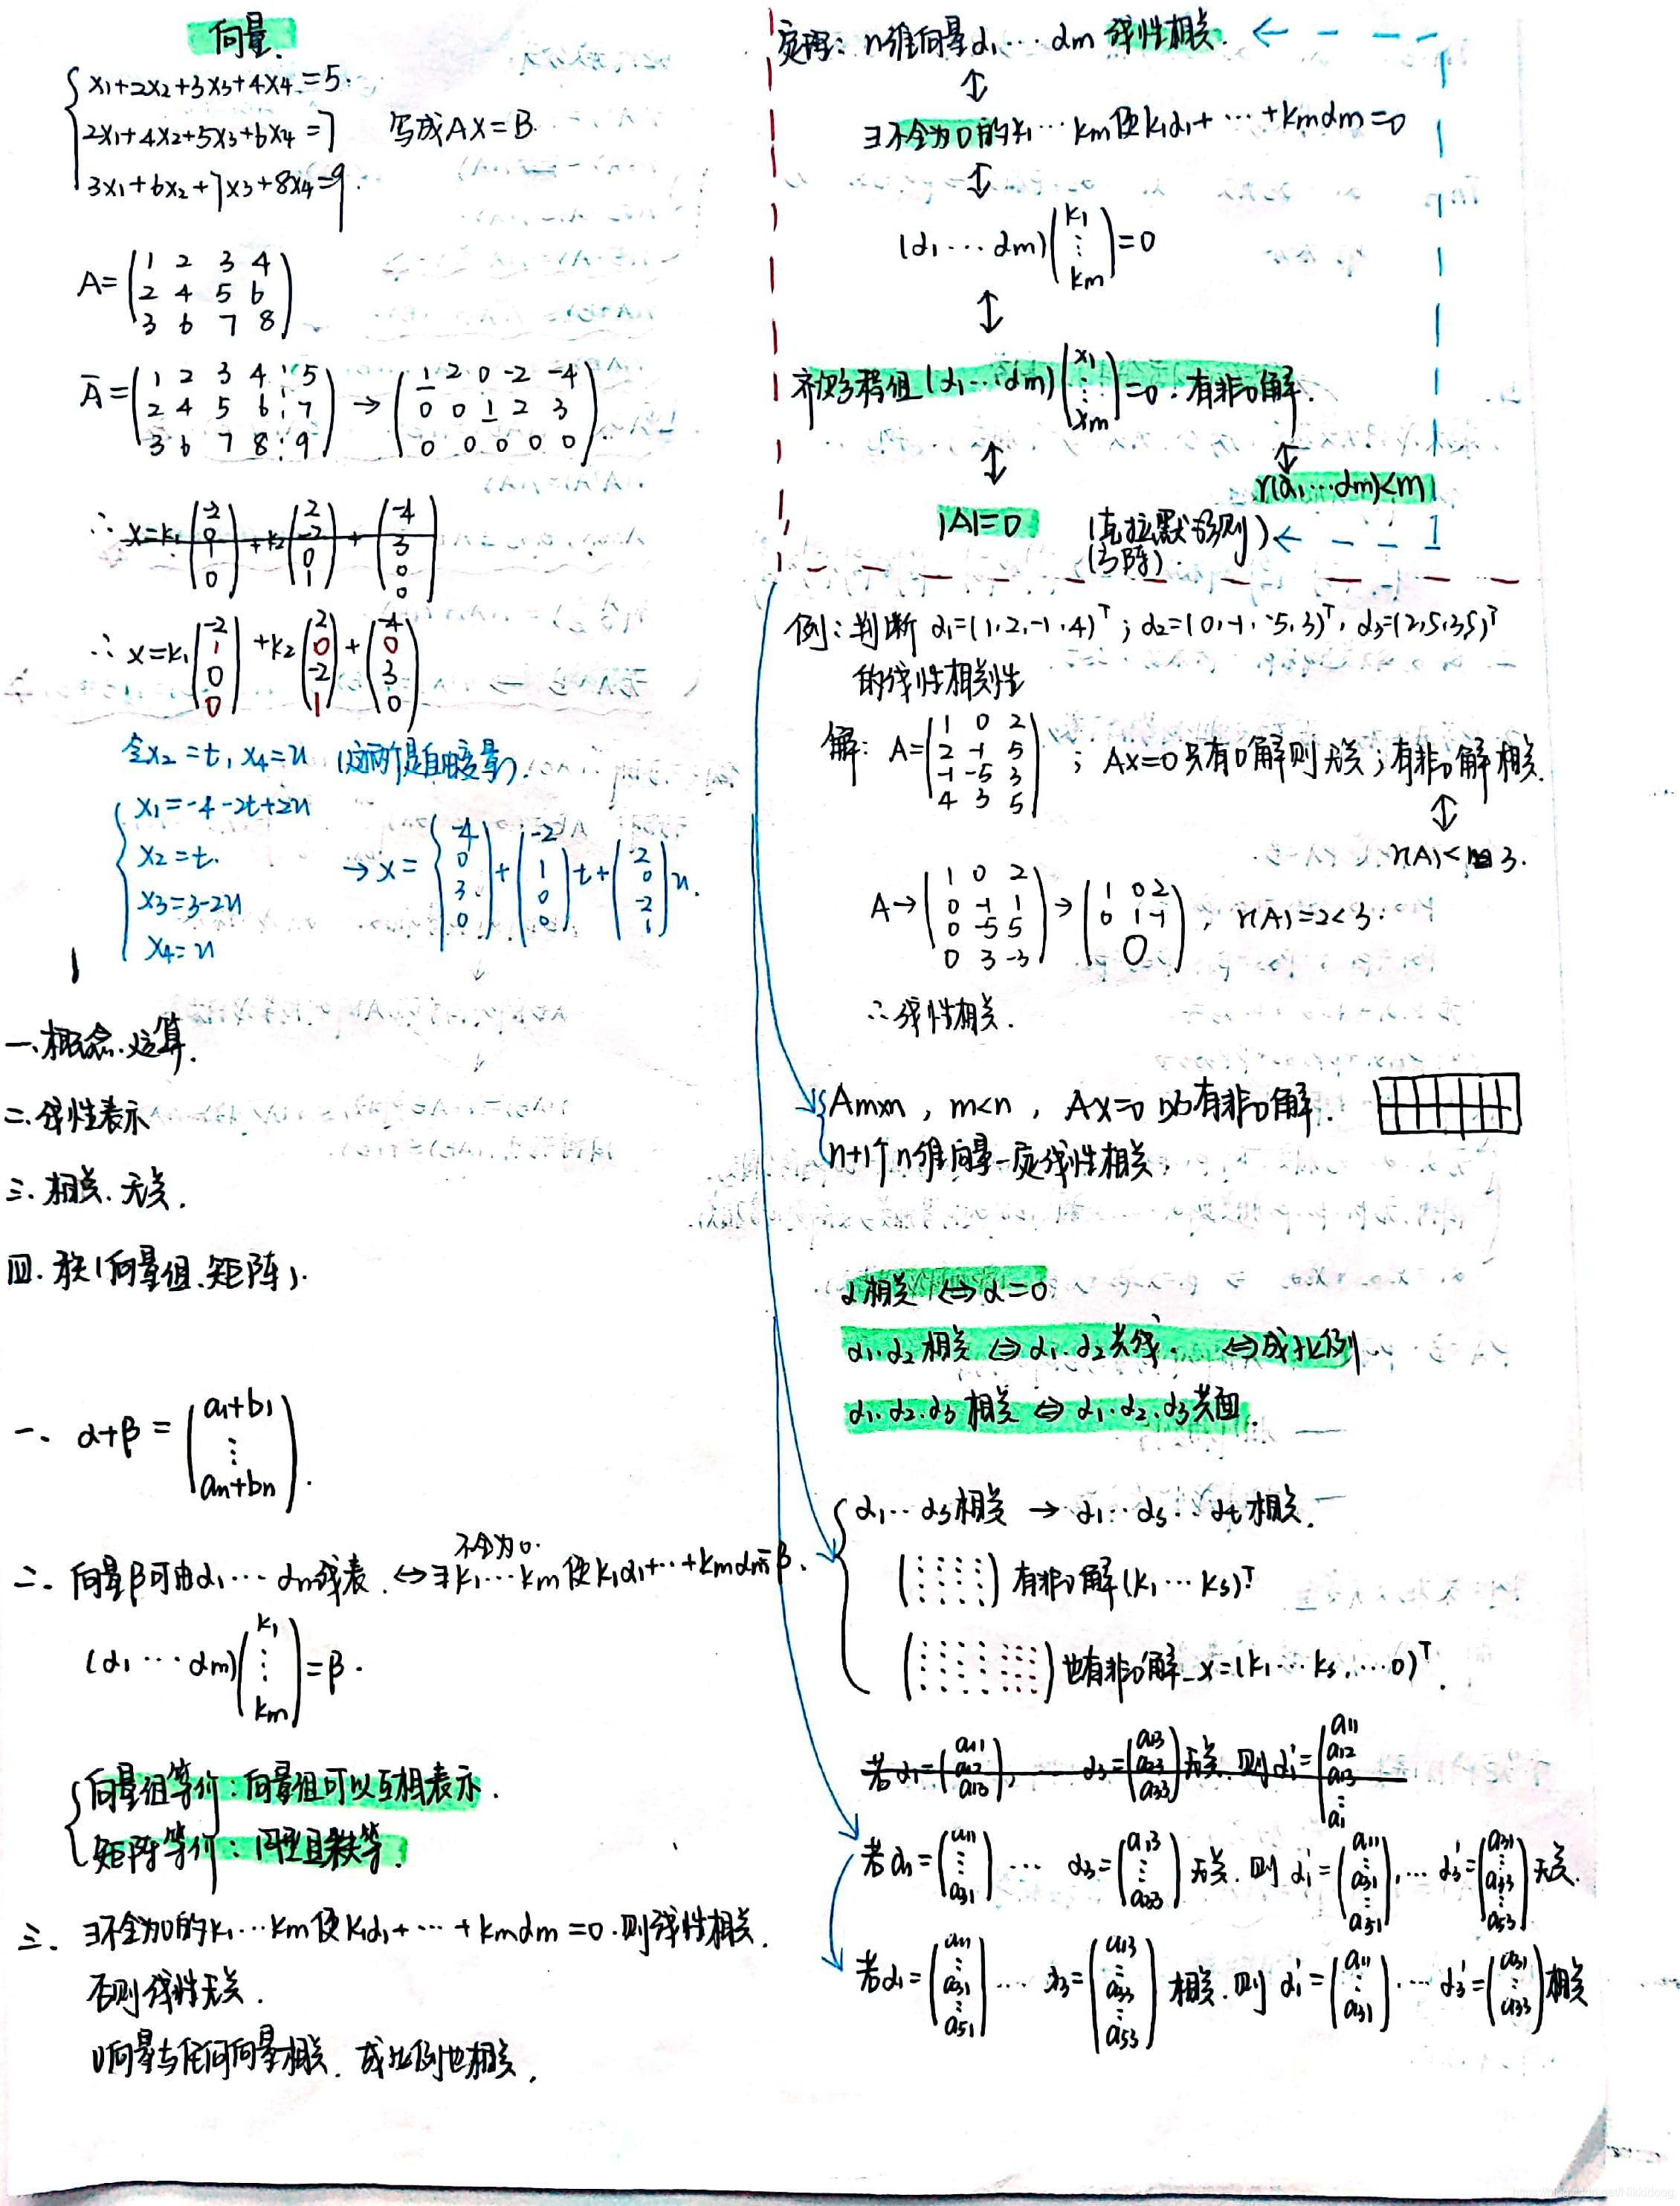 向量.
x₁+2x₂+3x₃+4x₄=5.
2x₁+4x₂+5x₃+6x₄=7 写成AX=B.
3x₁+6x₂+7x₃+8x₄=9.
A=(1 2 3 4
2 4 5 6
3 6 7 8)
Ā=(1 2 3 4 ┆ 5
2 4 5 6 ┆ 7
3 6 7 8 ┆ 9) → (1 2 0 -2 -4
0 0 1 2 3
0 0 0 0 0).
∴ x=k₁(-2 0 1 0)+k₂(2 -2 0 1)+(-4 3 0 0)
∴ x=k₁(-2 1 0 0)+k₂(2 0 -2 1)+(-4 0 3 0)
令x₂=t, x₄=u (这两个是自由变量).
x₁=-4-2t+2u
x₂=t.
x₃=3-2u
x₄=u
→x=(-4 0 3 0)+(-2 1 0 0)t+(2 0 -2 1)u.
一.概念.运算.
二.线性表示
三.相关.无关.
四.秩(向量组.矩阵).
一、α+β=(a₁+b₁ ⋮ aₙ+bₙ).
不全为0.
二、向量β可由α₁…αₙ线表.⇔∃k₁…kₘ使k₁α₁+…+kₘαₘ=β.
(α₁…αₘ)(k₁ ⋮ kₘ)=β.
向量组等价:向量组可以互相表示.
矩阵等价:同型且秩等.
三、∃不全为0的k₁…kₘ使k₁α₁+…+kₘαₘ=0.则线性相关.
否则线性无关.
0向量与任何向量相关.成比例也相关.
定理:n维向量α₁…αₘ线性相关.
↕
∃不全为0的k₁…kₘ使k₁α₁+…+kₘαₘ=0
↕
(α₁…αₘ)(k₁ ⋮ kₘ)=0
↕
齐次方程组(α₁…αₘ)(x₁ ⋮ xₘ)=0.有非0解.
↕ ↕
r(α₁…αₘ)<m
|A|=0 (克拉默法则)
(方阵).
例:判断α₁=(1,2,-1,4)ᵀ;α₂=(0,-1,-5,3)ᵀ,α₃=(2,5,3,5)ᵀ
的线性相关性
解:A=(1 0 2
2 -1 5
-1 -5 3
4 3 5) ; AX=0只有0解则无关;有非0解相关.
↕
r(A)<3.
A→(1 0 2
0 -1 1
0 -5 5
0 3 -3)→(1 0 2
0 1 -1
0), r(A)=2<3.
∴线性相关.
Aₘₓₙ, m<n, AX=0必有非0解.
n+1个n维向量一定线性相关.
α相关⇔α=0
α₁.α₂相关⇔α₁.α₂共线.⇔成比例
α₁.α₂.α₃相关⇔α₁.α₂.α₃共面.
α₁…αₛ相关→α₁…αₛ…αₜ相关.
(⋮⋮⋮⋮⋮)有非0解(k₁…kₛ)ᵀ
(⋮⋮⋮⋮⋮⋮⋮⋮)也有非0解x=(k₁…kₛ,…0)ᵀ.
若α₁=(a₁₁ a₁₂ a₁₃), α₃=(a₁₃ a₂₃ a₃₃)无关.则α₁'=(a₁₁ a₁₂ a₁₃ ⋮ a₁
若α₁=(a₁₁ ⋮ a₃₁)…α₃=(a₁₃ ⋮ a₃₃)无关.则α₁'=(a₁₁ ⋮ a₃₁ ⋮ a₅₁),…α₃'=(a₃₁ ⋮ a₃₃ ⋮ a₅₃)无关.
若α₁=(a₁₁ ⋮ a₃₁ ⋮ a₅₁)…α₃=(a₁₃ ⋮ a₃₃ ⋮ a₅₃)相关.则α₁'=(a₁₁ ⋮ a₃₁)…α₃'=(a₃₁ ⋮ a₃₃)相关